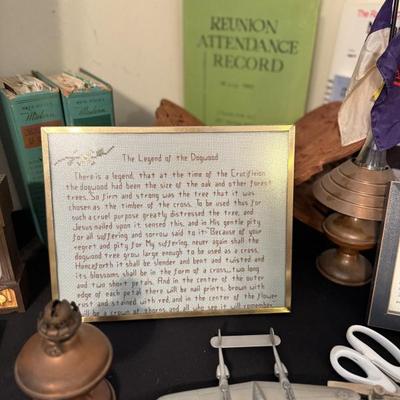 REUNION
ATTENDANCE
RECORD
Modern
Modern
The Legend of the Dogwood
There is a legend, that at the time of the Crucifixion
the dogwood had been the size of the oak and other forest
trees. So firm and strong was the tree that it was
chosen as the timber of the cross. To be used thus for
such a cruel purpose greatly distressed the tree, and
Jesus nailed upon it sensed this, and in His gentle pity
for all suffering and sorrow said to it: Because of your
regret and pity for My suffering, never again shall the
dogwood tree grow large enough to be used as a cross.
Henceforth it shall be slender and bent and twisted and
its blossoms shall be in the form of a cross, two long
and two short petals. And in the center of the outer
edge of each petal there will be nail prints, brown with
rust and stained with red, and in the center of the flower
will be a crown of thorns, and all who see it will remember.